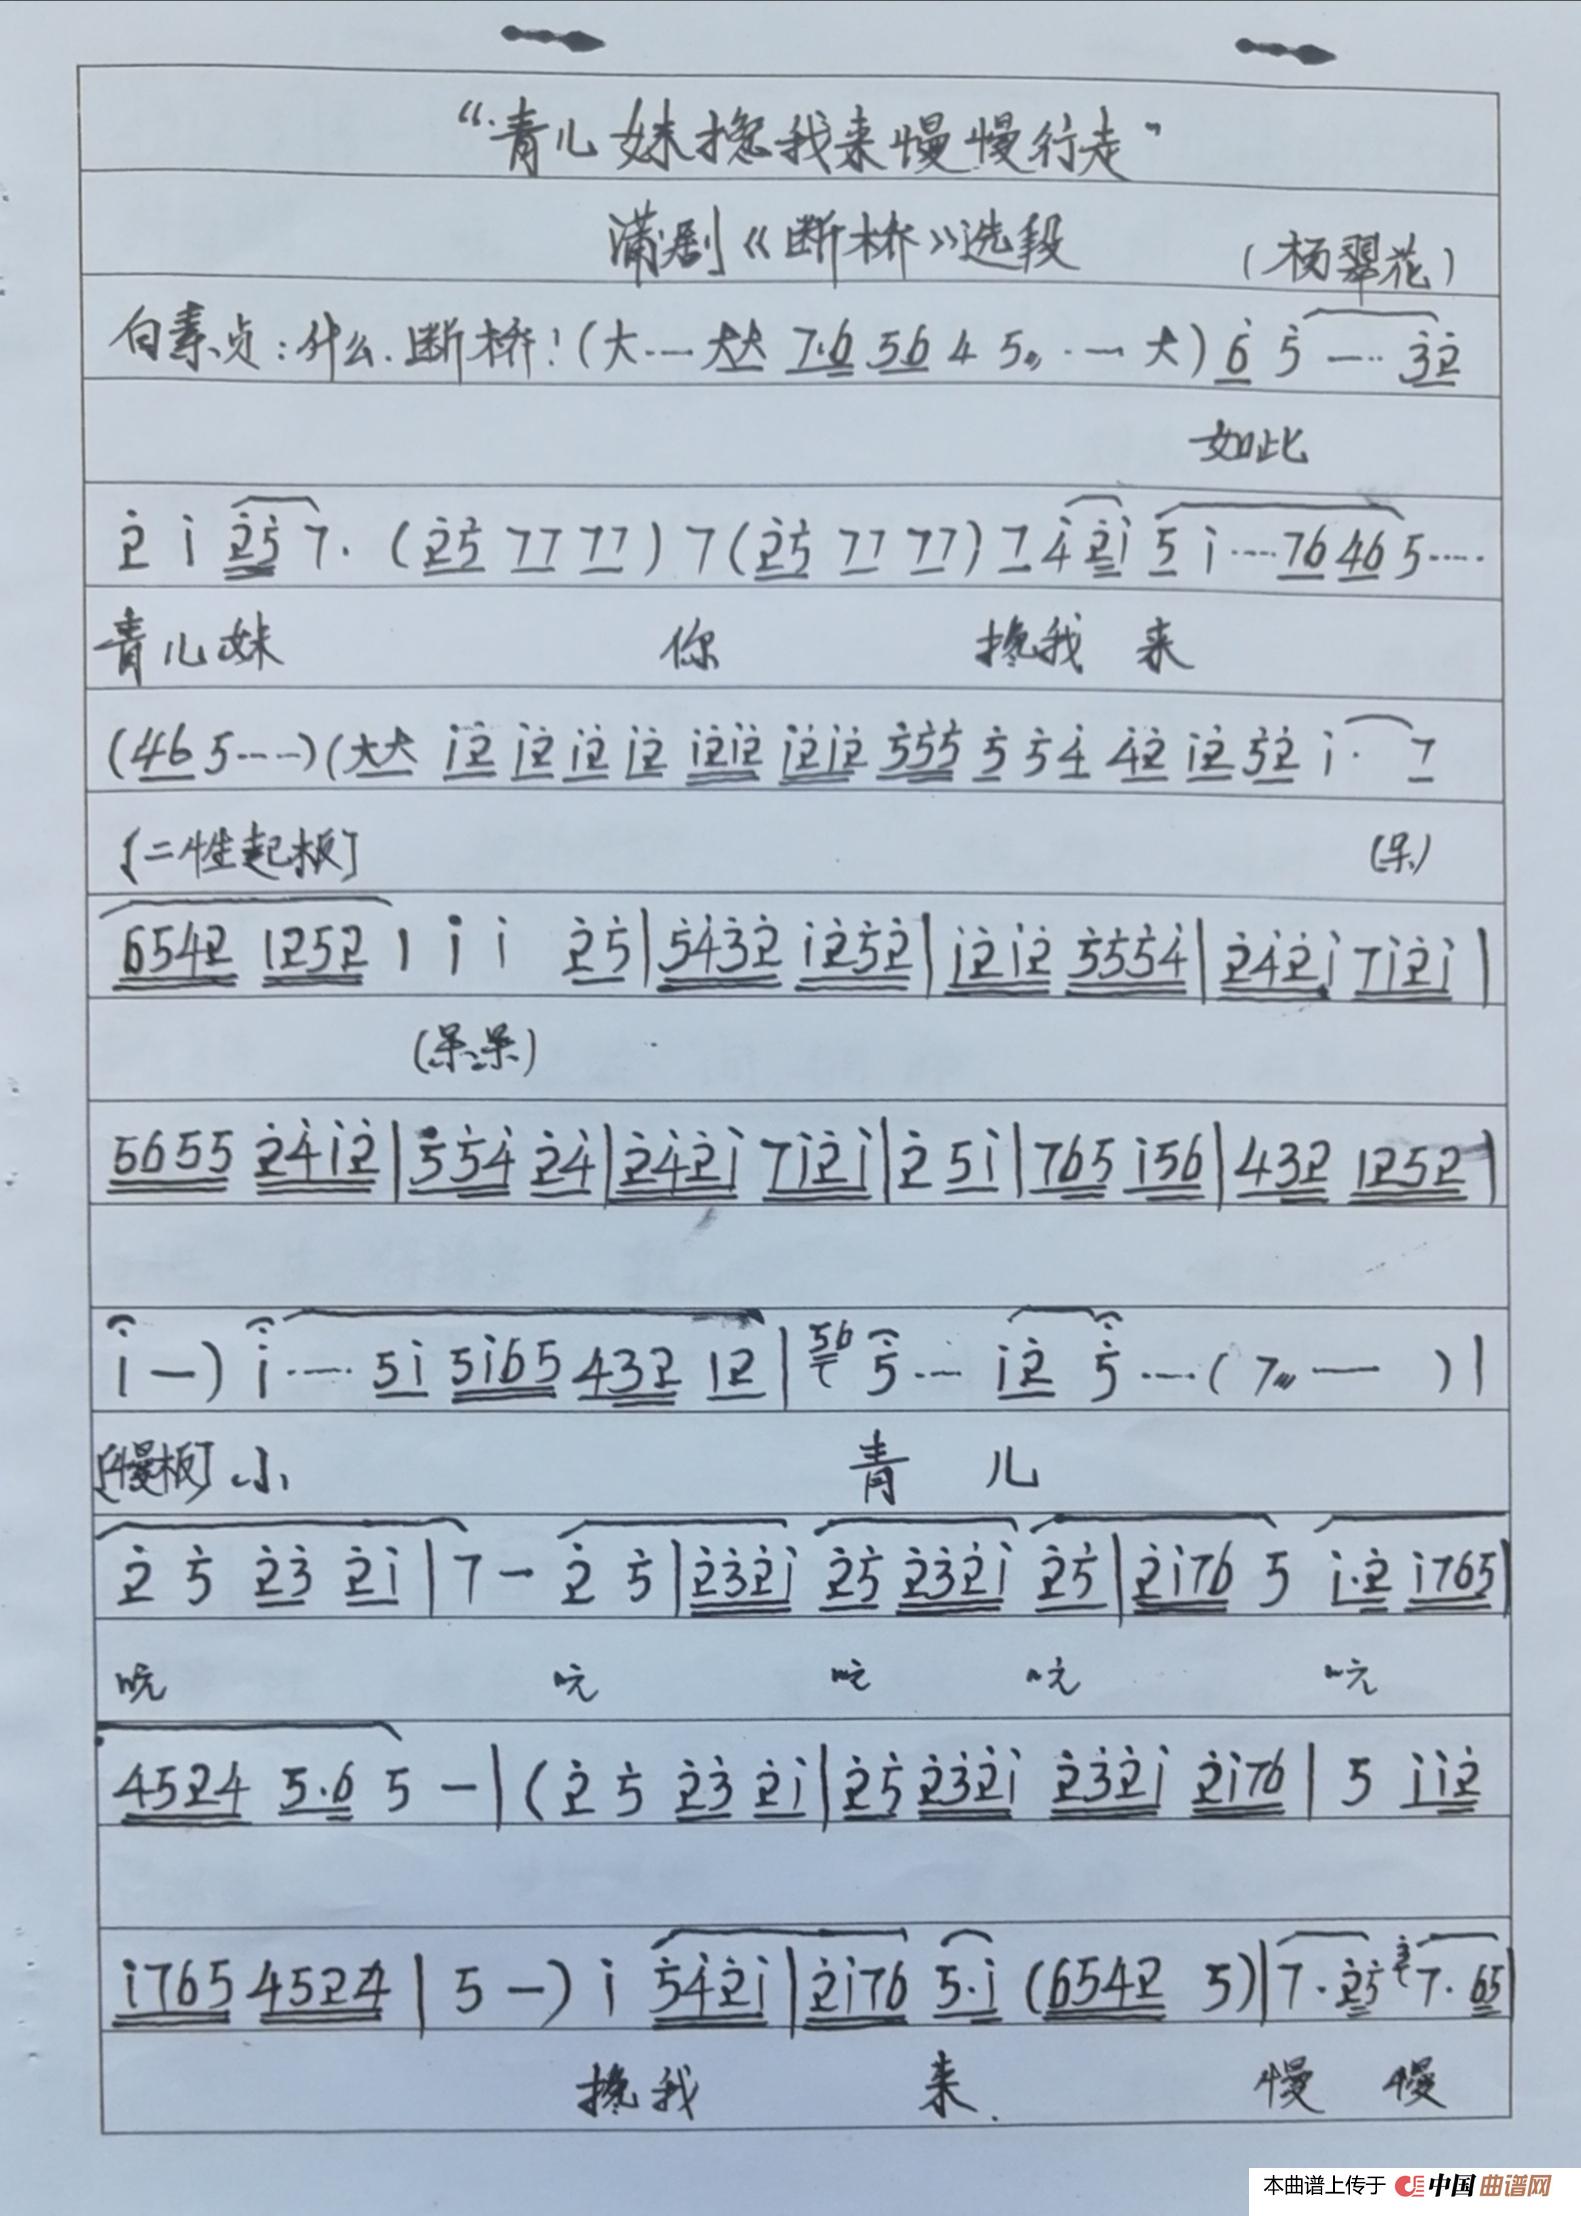 “青儿妹搀我来慢慢行走”
蒲剧《断桥》选段
(杨翠花)
白素贞:什么.断桥!(大·—·大大 7·6 56 4 5〃·—·大) 6̇ 5̇ —·· 3̇2̇
如此
2̇ 1̇ 2̇5̇ 7· (2̇5̇ 77 77) 7 (2̇5̇ 77 77) 7 4̇ 2̇1̇ 5̇ 1̇ ···· 76 46 5 ·····
青儿妹 你 搀我 来
(46 5 ----) (大大 1̇2̇ 1̇2̇ 1̇2̇ 1̇2̇ 1̇2̇1̇2̇ 1̇2̇1̇2̇ 5̇5̇5̇ 5̇ 5̇ 4̇ 4̇2̇ 1̇2̇ 5̇2̇ 1̇· 7
[二性起板] (呆)
6542 1252 1 1̇ 1̇ 2̇5̇ | 5̇4̇3̇2̇ 1̇2̇5̇2̇ | 1̇2̇1̇2̇ 5̇5̇5̇4̇ | 2̇4̇2̇1̇ 71̇2̇1̇ |
(呆呆)
5655 2̇4̇1̇2̇ | 5̇5̇4̇ 2̇4̇ | 2̇4̇2̇1̇ 71̇2̇1̇ | 2̇ 51̇ | 765 1̇56 | 432 1252 |
1̇ —) 1̇ ···· 51̇ 51̇65 432 12 | 56 5̇ ···· 1̇2̇ 5̇ ···· ( 7〃 — ) |
[慢板] 小 青 儿
2̇ 5̇ 2̇3̇ 2̇1̇ | 7 — 2̇ 5̇ | 2̇3̇2̇1̇ 2̇5̇ 2̇3̇2̇1̇ 2̇5̇ | 2̇1̇76 5 1̇·2̇ 1̇765 |
吭 吭 吭 吭 吭
4524 5·6 5 — | (2̇ 5̇ 2̇3̇ 2̇1̇ | 2̇5̇ 2̇3̇2̇1̇ 2̇3̇2̇1̇ 2̇1̇76 | 5 1̇1̇2̇
1̇765 4524 | 5 —) 1̇ 5̇4̇2̇1̇ | 2̇1̇76 5·1̇ (6542 5) | 7·2̇5̇ 7·65 |
搀我 来 慢 慢
本曲谱上传于 中国曲谱网